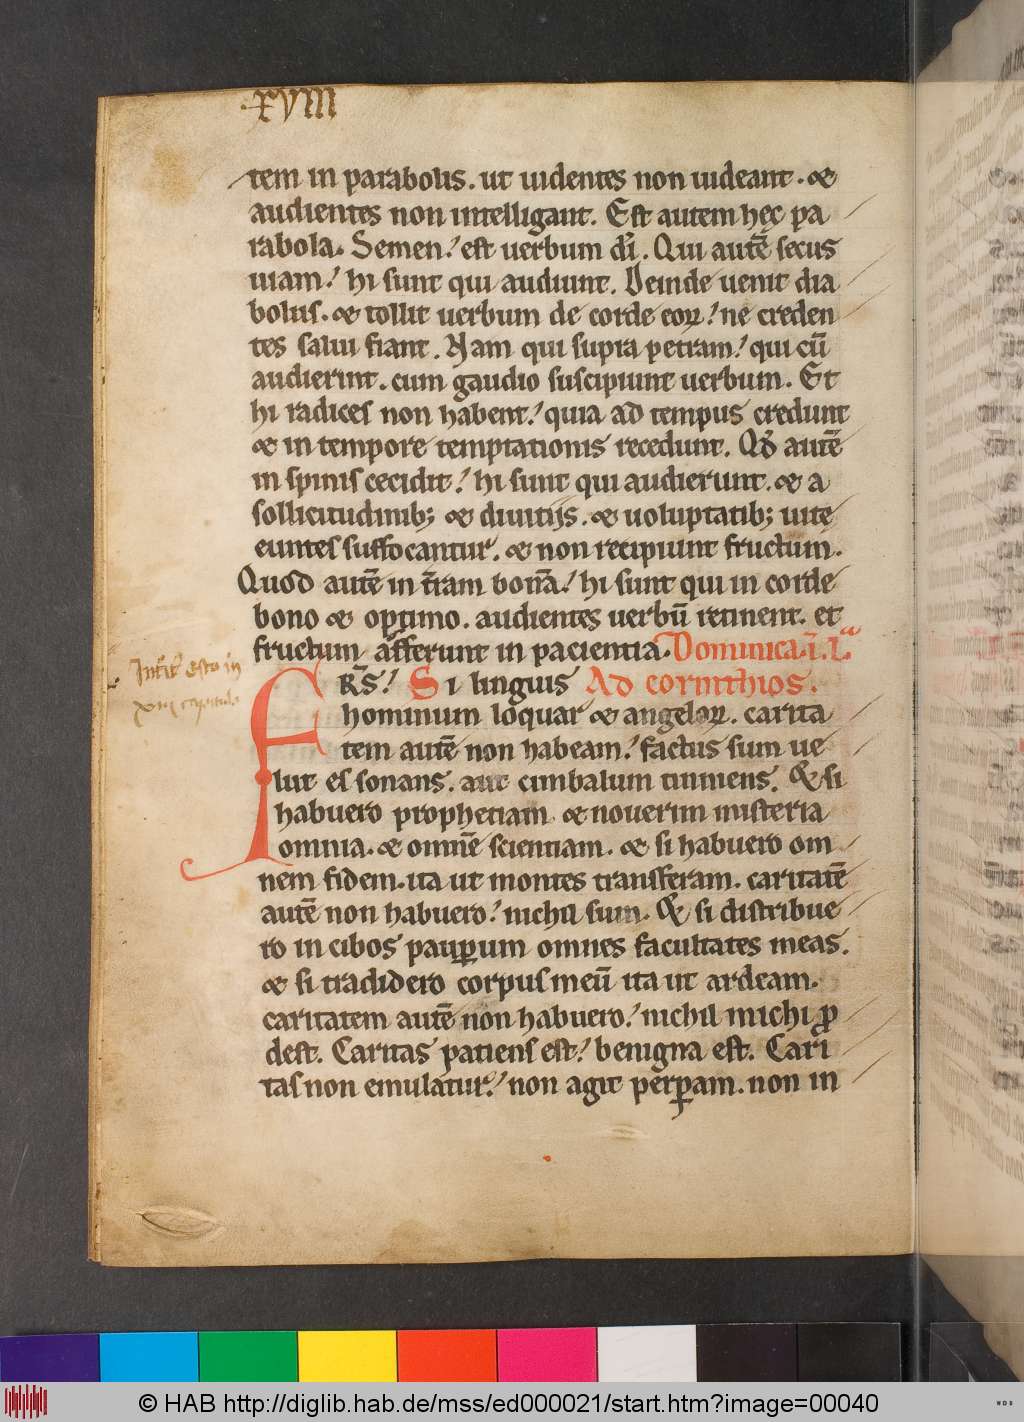 ·xviii
tem in parabolis. ut uidentes non uideant. &
audientes non intelligant. Est autem hęc pa
rabola. Semen! est uerbum dī. Qui autē secus
uiam! hi sunt qui audiunt. Deinde uenit dia
bolus. & tollit uerbum de corde eoꝝ! ne creden
tes salui fiant. Nam qui supra petram! qui cū
audierint. cum gaudio suscipiunt uerbum. Et
hi radices non habent! quia ad tempus credunt
& in tempore temptationis recedunt. Qđ autē
in spinis cecidit! hi sunt qui audierunt. & a
sollicitudinib; & diuitijs. & uoluptatib; uite
euntes suffocantur. & non recipiunt fructum.
Quod autē in t̄ram bonā! hi sunt qui in corde
bono & optimo. audientes uerbū retinent. et
fructum afferunt in pacientia. Dominica.i.L.a
FRS̄! Si linguis Ad corinthios.
hominum loquar & angeloꝝ. carita
tem autē non habeam! factus sum ue
lut es sonans. aut cimbalum tinniens. & si
habuero prophetiam & nouerim misteria
omnia. & omnē scientiam. & si habuero om
nem fidem. ita ut montes transferam. caritatē
autē non habuero! nichil sum. & si distribue
ro in cibos pauꝑum omnes facultates meas.
& si tradidero corpus meū ita ut ardeam.
caritatem autē non habuero! nichil michi ꝓ
dest. Caritas patiens est! benigna est. Cari
tas non emulatur! non agit perꝑam. non in
esto in
© HAB http://diglib.hab.de/mss/ed000021/start.htm?image=00040